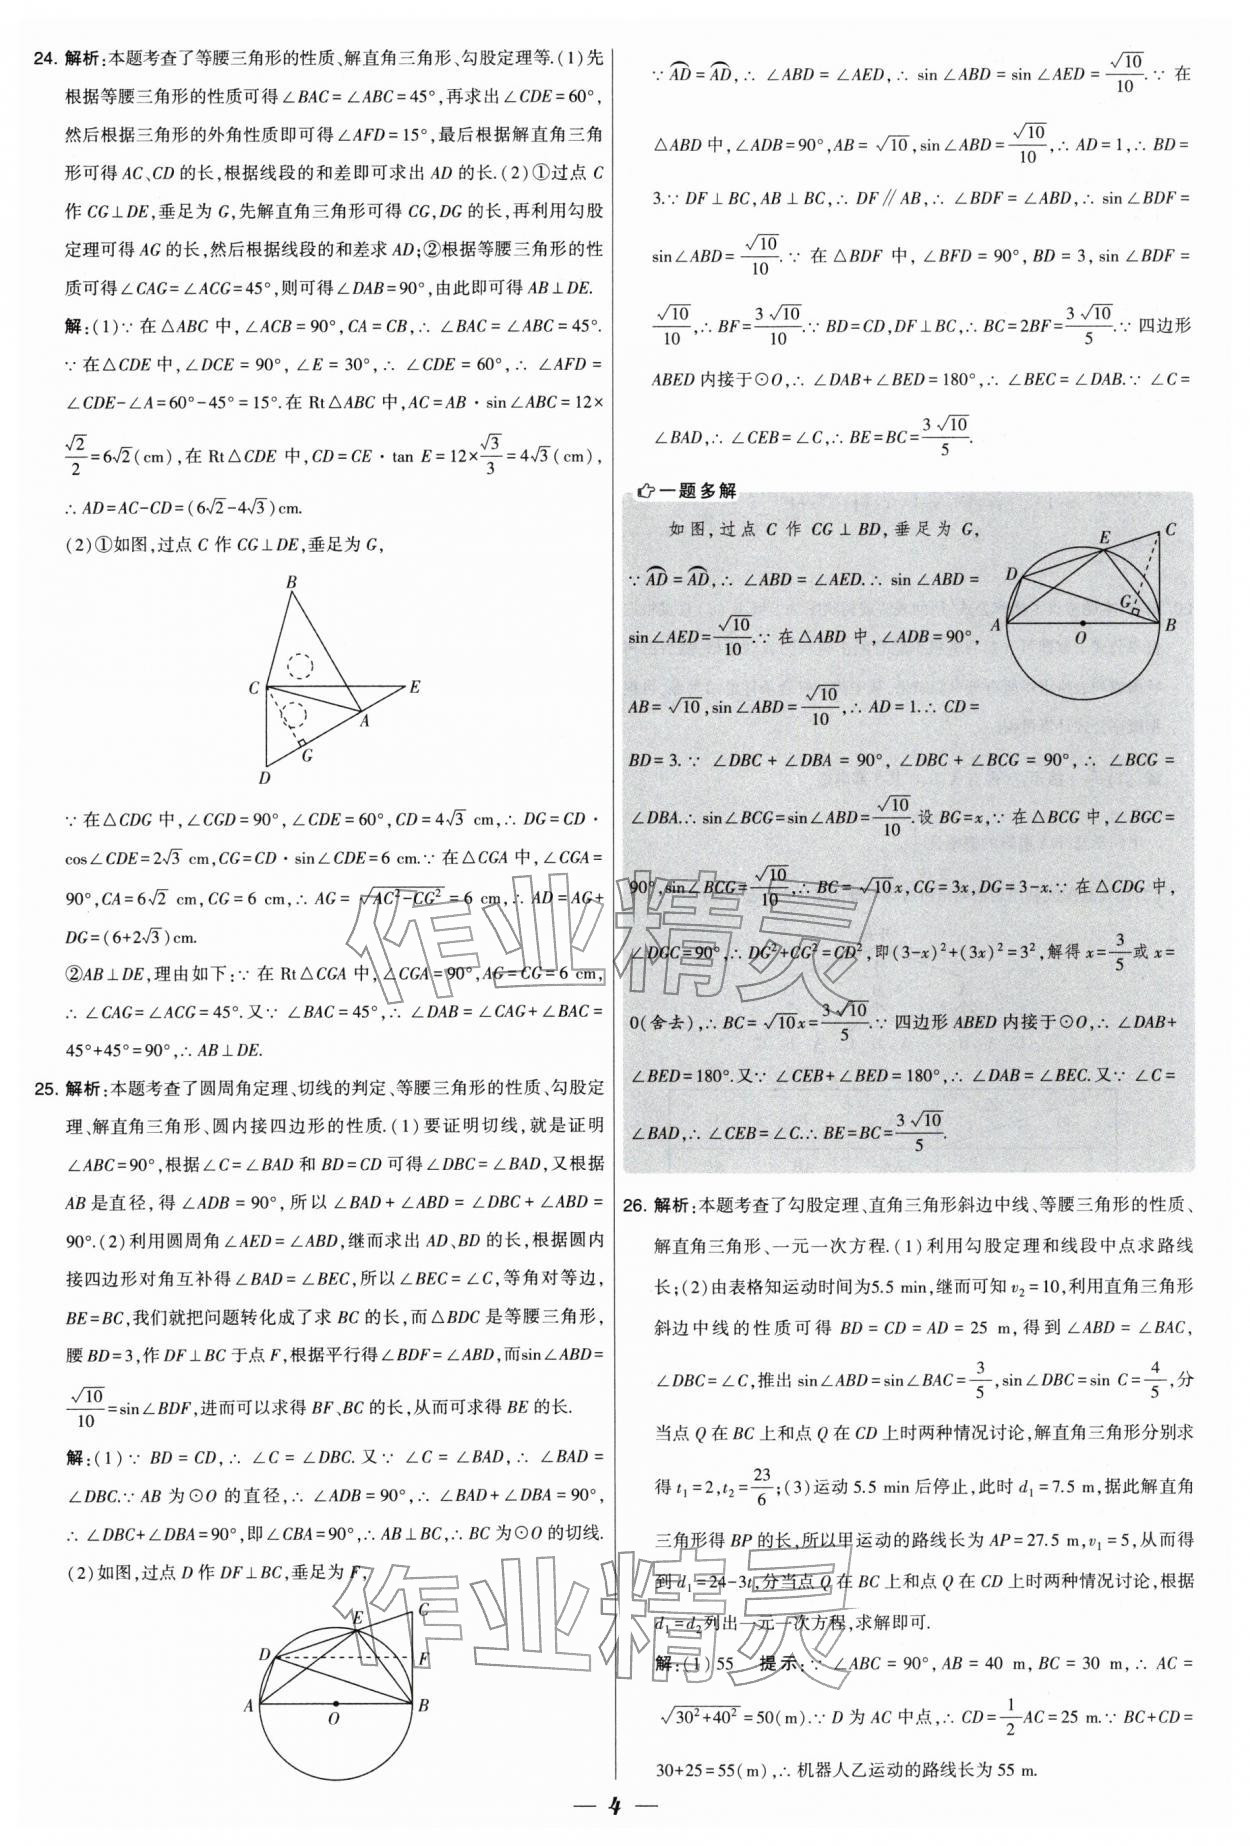 24. 解析:本题考查了等腰三角形的性质、解直角三角形、勾股定理等.(1)先
根据等腰三角形的性质可得∠BAC=∠ABC=45°,再求出∠CDE=60°,
然后根据三角形的外角性质即可得∠AFD=15°,最后根据解直角三角
形可得AC、CD的长,根据线段的和差即可求出AD的长.(2)①过点C
作CG⊥DE,垂足为G,先解直角三角形可得CG,DG的长,再利用勾股
定理可得AG的长,然后根据线段的和差求AD;②根据等腰三角形的性
质可得∠CAG=∠ACG=45°,则可得∠DAB=90°,由此即可得AB⊥DE.
解:(1)∵在△ABC中,∠ACB=90°,CA=CB,∴∠BAC=∠ABC=45°.
∵在△CDE中,∠DCE=90°,∠E=30°,∴∠CDE=60°,∴∠AFD=
∠CDE-∠A=60°-45°=15°.在Rt△ABC中,AC=AB·sin∠ABC=12×
√2/2=6√2(cm),在Rt△CDE中,CD=CE·tan E=12×√3/3=4√3(cm),
∴AD=AC-CD=(6√2-4√3)cm.
(2)①如图,过点C作CG⊥DE,垂足为G,
B
C
E
A
G
D
∵在△CDG中,∠CGD=90°,∠CDE=60°,CD=4√3 cm,∴DG=CD·
cos∠CDE=2√3 cm,CG=CD·sin∠CDE=6 cm.∵在△CGA中,∠CGA=
90°,CA=6√2 cm,CG=6 cm,∴AG=√(AC²-CG²)=6 cm,∴AD=AG+
DG=(6+2√3)cm.
②AB⊥DE,理由如下:∵在Rt△CGA中,∠CGA=90°,AG=CG=6 cm,
∴∠CAG=∠ACG=45°.又∵∠BAC=45°,∴∠DAB=∠CAG+∠BAC=
45°+45°=90°,∴AB⊥DE.
25. 解析:本题考查了圆周角定理、切线的判定、等腰三角形的性质、勾股定
理、解直角三角形、圆内接四边形的性质.(1)要证明切线,就是证明
∠ABC=90°,根据∠C=∠BAD和BD=CD可得∠DBC=∠BAD,又根据
AB是直径,得∠ADB=90°,所以∠BAD+∠ABD=∠DBC+∠ABD=
90°.(2)利用圆周角∠AED=∠ABD,继而求出AD、BD的长,根据圆内
接四边形对角互补得∠BAD=∠BEC,所以∠BEC=∠C,等角对等边,
BE=BC,我们就把问题转化成了求BC的长,而△BDC是等腰三角形,
腰BD=3,作DF⊥BC于点F,根据平行得∠BDF=∠ABD,而sin∠ABD=
√10/10=sin∠BDF,进而可以求得BF、BC的长,从而可求得BE的长.
解:(1)∵BD=CD,∴∠C=∠DBC.又∵∠C=∠BAD,∴∠BAD=
∠DBC.∵AB为⊙O的直径,∴∠ADB=90°,∴∠BAD+∠DBA=90°,
∴∠DBC+∠DBA=90°,即∠CBA=90°,∴AB⊥BC,∴BC为⊙O的切线.
(2)如图,过点D作DF⊥BC,垂足为F,
E
C
D
F
A
B
O
∵AD=AD,∴∠ABD=∠AED,∴sin∠ABD=sin∠AED=√10/10.∵在
△ABD中,∠ADB=90°,AB=√10,sin∠ABD=√10/10,∴AD=1,∴BD=
3.∵DF⊥BC,AB⊥BC,∴DF∥AB,∴∠BDF=∠ABD,∴sin∠BDF=
sin∠ABD=√10/10.∵在△BDF中,∠BFD=90°,BD=3,sin∠BDF=
√10/10,∴BF=3√10/10.∵BD=CD,DF⊥BC,∴BC=2BF=3√10/5.∵四边形
ABED内接于⊙O,∴∠DAB+∠BED=180°,∴∠BEC=∠DAB.∵∠C=
∠BAD,∴∠CEB=∠C,∴BE=BC=3√10/5.
一题多解
如图,过点C作CG⊥BD,垂足为G,
∵AD=AD,∴∠ABD=∠AED.∴sin∠ABD=
sin∠AED=√10/10.∵在△ABD中,∠ADB=90°,
AB=√10,sin∠ABD=√10/10,∴AD=1.∴CD=
BD=3.∵∠DBC+∠DBA=90°,∠DBC+∠BCG=90°,∴∠BCG=
∠DBA.∴sin∠BCG=sin∠ABD=√10/10.设BG=x,∵在△BCG中,∠BGC=
90°,sin∠BCG=√10/10,∴BC=√10x,CG=3x,DG=3-x.∵在△CDG中,
∠DGC=90°,∴DG²+CG²=CD²,即(3-x)²+(3x)²=3²,解得x=3/5或x=
0(舍去),∴BC=√10x=3√10/5.∵四边形ABED内接于⊙O,∴∠DAB+
∠BED=180°.又∵∠CEB+∠BED=180°,∴∠DAB=∠BEC.又∵∠C=
∠BAD,∴∠CEB=∠C.∴BE=BC=3√10/5.
C
E
D
G
A
B
O
26. 解析:本题考查了勾股定理、直角三角形斜边中线、等腰三角形的性质、
解直角三角形、一元一次方程.(1)利用勾股定理和线段中点求路线
长;(2)由表格知运动时间为5.5 min,继而可知v₂=10,利用直角三角形
斜边中线的性质可得BD=CD=AD=25 m,得到∠ABD=∠BAC,
∠DBC=∠C,推出sin∠ABD=sin∠BAC=3/5,sin∠DBC=sin C=4/5,分
当点Q在BC上和点Q在CD上时两种情况讨论,解直角三角形分别求
得t₁=2,t₂=23/6;(3)运动5.5 min后停止,此时d₁=7.5 m,据此解直角
三角形得BP的长,所以甲运动的路线长为AP=27.5 m,v₁=5,从而得
到d₁=24-3t,分当点Q在BC上和点Q在CD上时两种情况讨论,根据
d₁=d₂列出一元一次方程,求解即可.
解:(1)55 提示:∵∠ABC=90°,AB=40 m,BC=30 m,∴AC=
√(30²+40²)=50(m).∵D为AC中点,∴CD=1/2AC=25 m.∵BC+CD=
30+25=55(m),∴机器人乙运动的路线长为55 m.
作业精灵
作业精灵
— 4 —